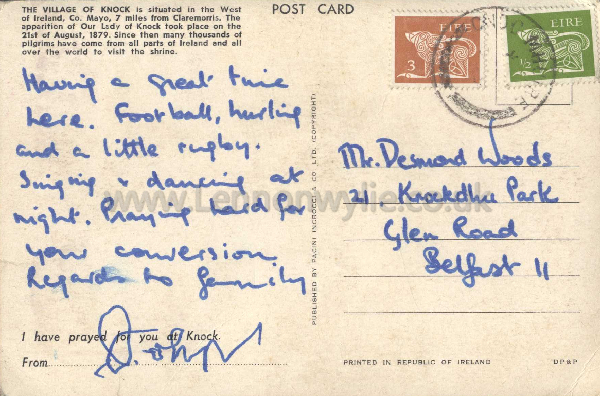 THE VILLAGE OF KNOCK is situated in the West
of Ireland, Co. Mayo, 7 miles from Claremorris. The
apparition of Our Lady of Knock took place on the
21st of August, 1879. Since then many thousands of
pilgrims have come from all parts of Ireland and all
over the world to visit the shrine.
POST CARD
EIRE
3
EIRE
1/2
Having a great time
here. Football, hurling
and a little rugby.
Singing & dancing at
night. Praying hard for
your conversion
Regards to family
I have prayed for you at Knock.
From
PUBLISHED BY PACINI INCROCELLA CO. LTD. (COPYRIGHT)
Mr. Desmond Woods
21, Knockdhu Park
Glen Road
Belfast 11
PRINTED IN REPUBLIC OF IRELAND
DP&P
www.Lennonwylie.co.uk